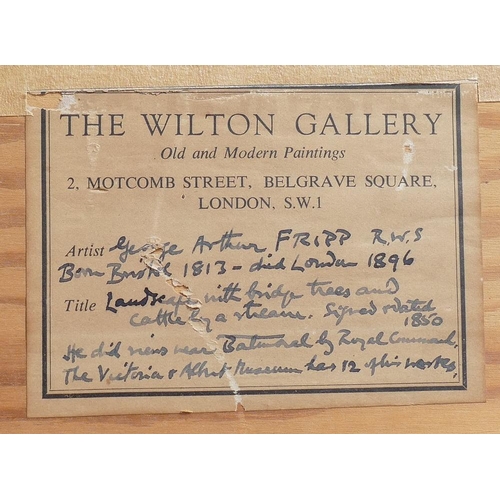 THE WILTON GALLERY
Old and Modern Paintings
2, MOTCOMB STREET, BELGRAVE SQUARE,
LONDON, S.W.1
Artist George Arthur FRIPP R.W.S
Born Bristol 1813 - died London 1896
Title Landscape with bridge trees and
cattle by a stream. Signed & dated
1850
He did views near Balmoral by Royal Command.
The Victoria & Albert Museum has 12 of his works.